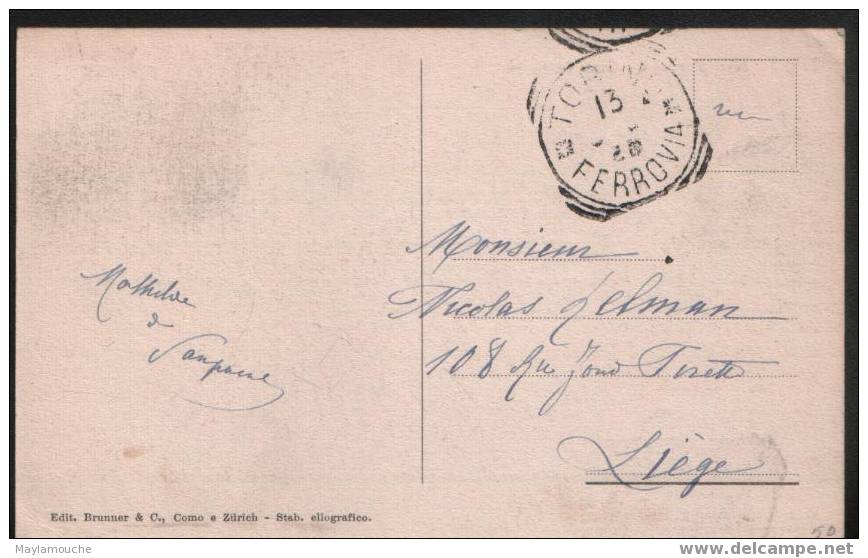 TORINO
13
FERROVIA
Mathilde
Monsieur
Nicolas Zelman
108 Rue Fond Pirette
Liège
Edit. Brunner & C., Como e Zürich - Stab. eliografico.
50
Maylamouche
delcampe.net